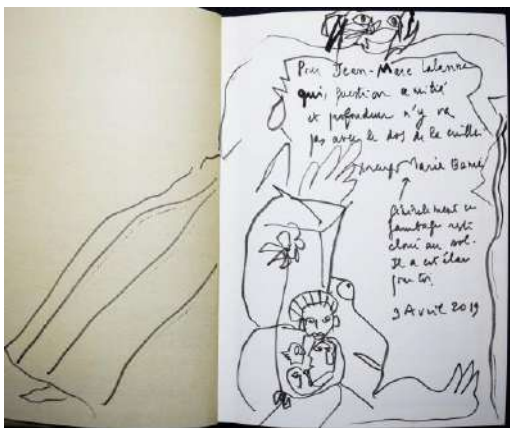 Pour Jean-Marc Lalanne
qui, question amitié
et profondeur n'y va
pas avec le dos de la cuiller
François-Marie Banier
Généralement ce
jambage reste
cloué au sol.
Il a cet élan
pour toi.
3 Avril 2019